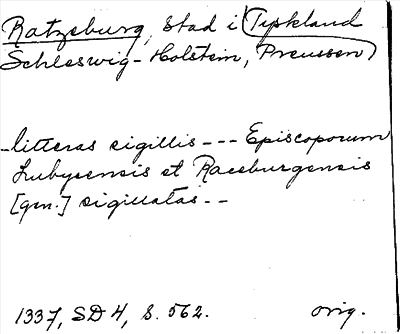 Ratzeburg, stad i Tyskland
Schleswig-Holstein, Preussen
-litteras sigillis --- Episcoporum
Lubycensis et Raceburgensis
[gm.] sigillatas --
1337, SD 4, s. 562. orig.